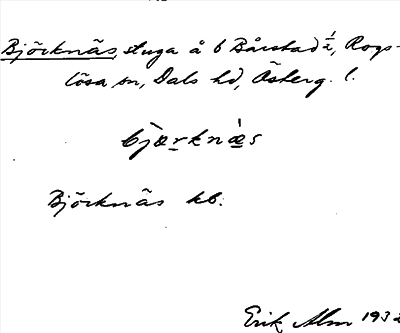 Björknäs, stuga å 6 Bårstad 1/2, Rogs-
lösa sn, Dals hd, Österg. l.
bjærknæs
Björknäs kb.
Erik Alm 1932